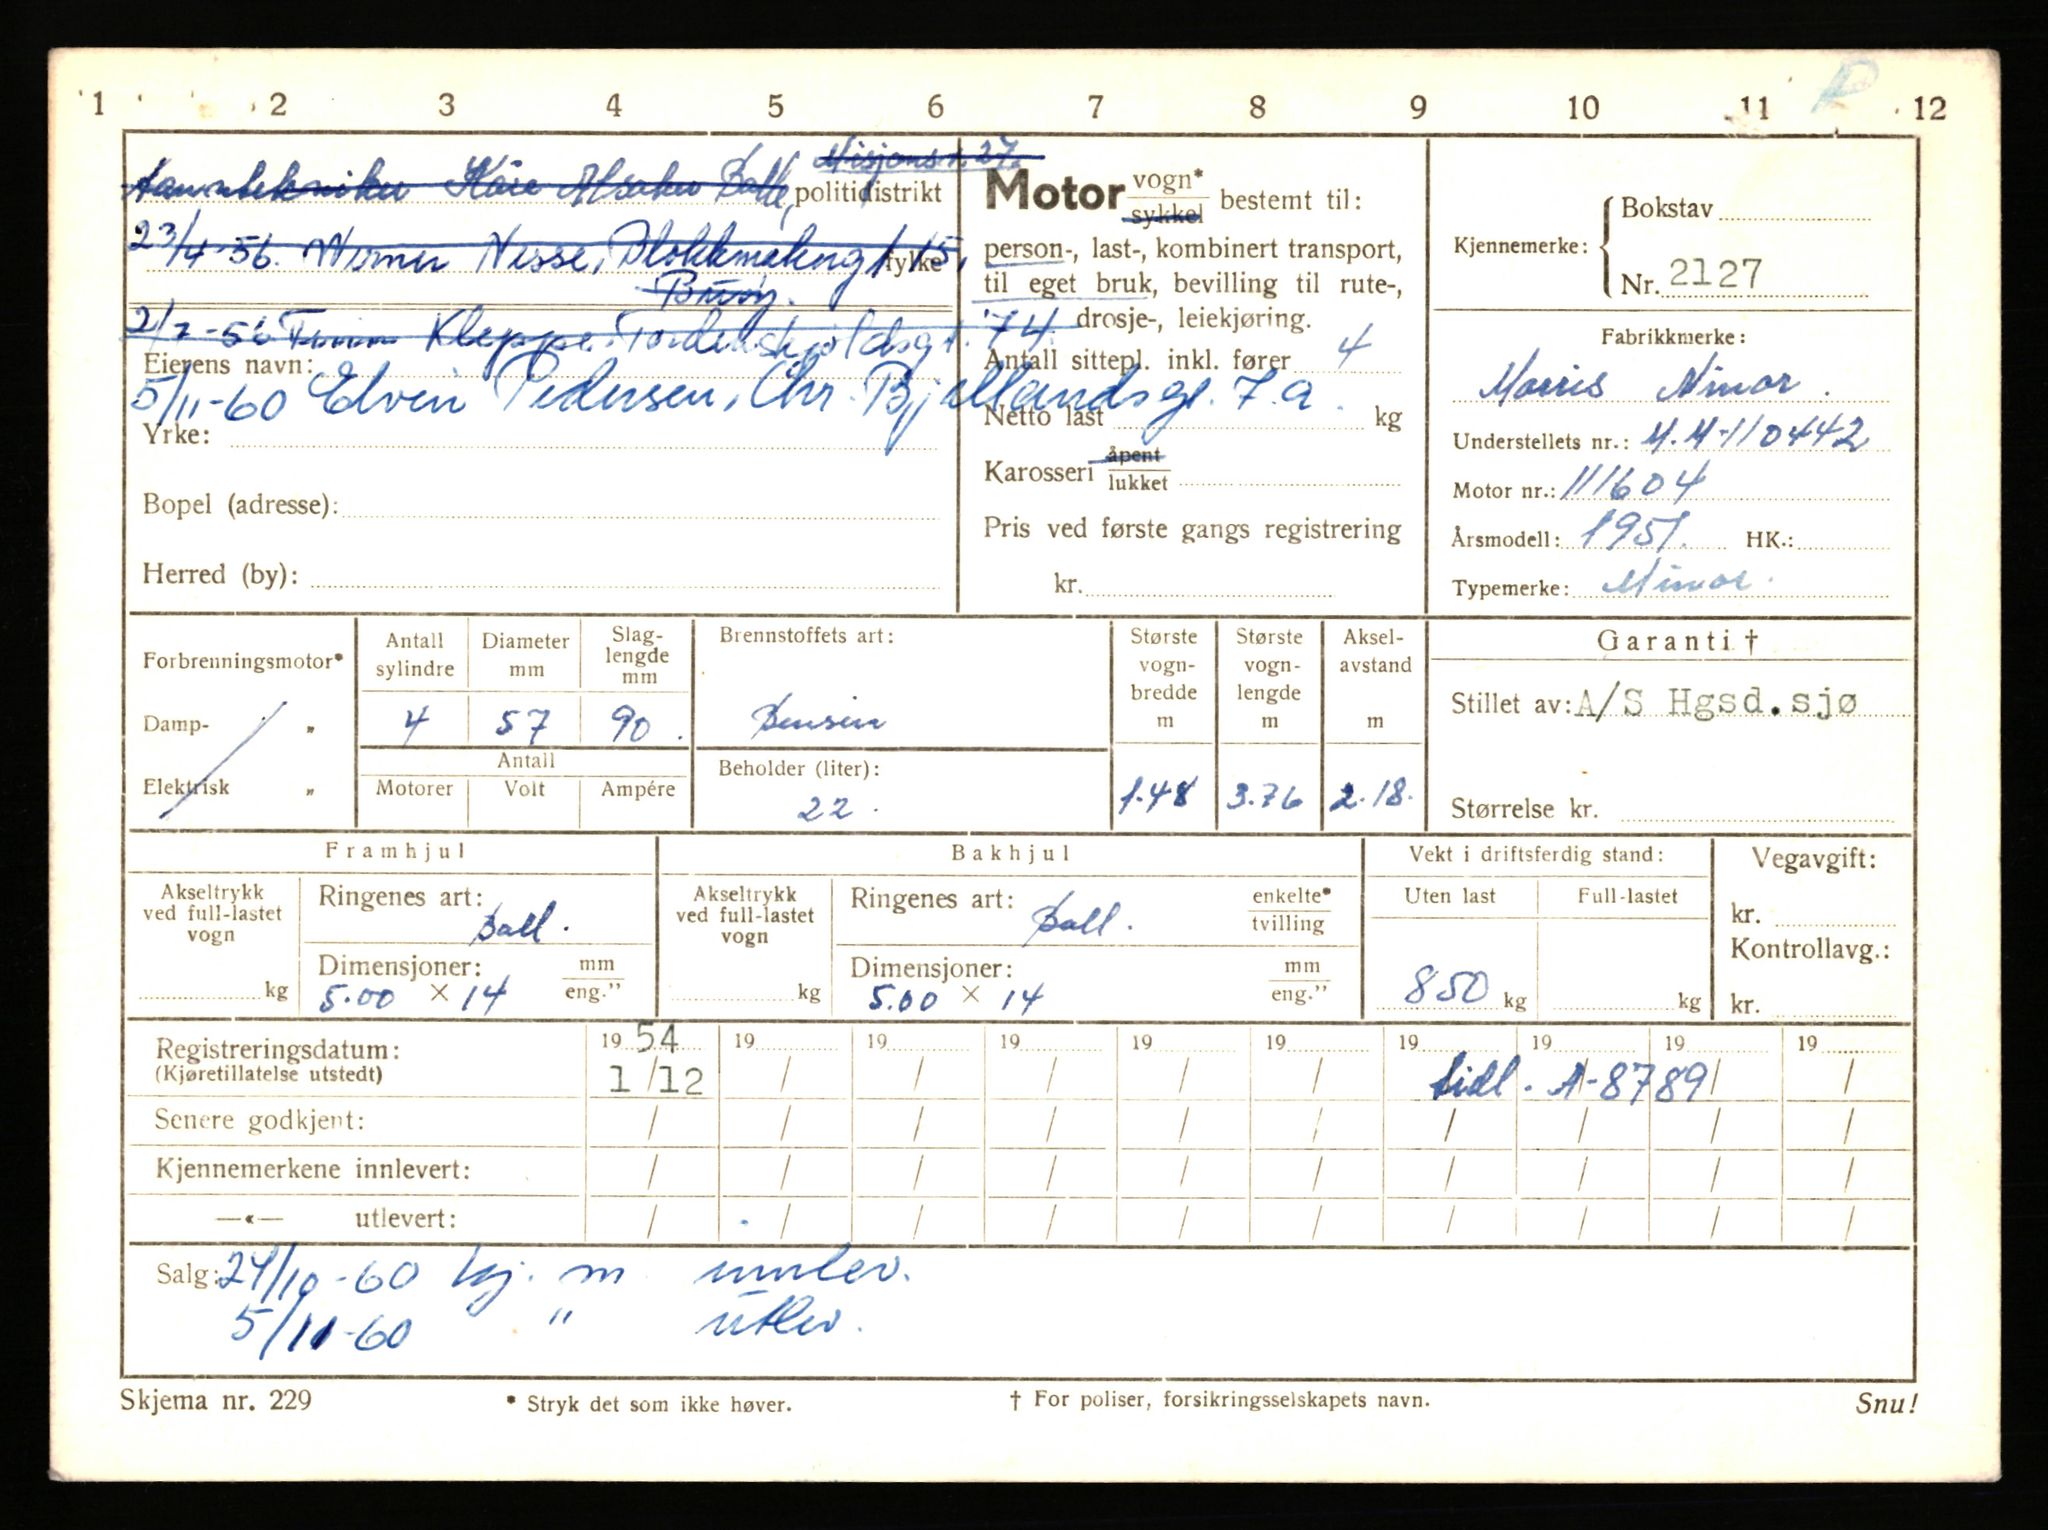 1 2 3 4 5 6 7 8 9 10 11 12
Misjonsv. 27.
Tanntekniker Kåre Alsaker Balle, politidistrikt
23/4-56. Werner Nesse, Blokkmakerg. 15, fylke
Buøy.
2/7-56 Finn Kleppe Tordenskjoldsgt. 74.
Eierens navn:
5/11-60 Elvin Pedersen, Chr. Bjellandsgt. 7.a.
Yrke:
Bopel (adresse):
Herred (by):
Motor vogn* sykkel bestemt til:
person-, last-, kombinert transport,
til eget bruk, bevilling til rute-,
drosje-, leiekjøring.
Antall sittepl. inkl. fører 4
Netto last kg
Karosseri åpent lukket
Pris ved første gangs registrering
kr.
Kjennemerke: Bokstav
Nr. 2127
Fabrikkmerke:
Morris Minor.
Understellets nr.: M.M-110442
Motor nr.: 111604
Årsmodell: 1951. HK.:
Typemerke: Minor.
Forbrenningsmotor*
Damp- "
Elektrisk "
Antall sylindre Diameter mm Slag-lengde mm
4 57 90.
Antall
Motorer Volt Ampére
Brennstoffets art:
Bensin
Beholder (liter):
22.
Største vogn-bredde m Største vogn-lengde m Aksel-avstand m
1.48 3.76 2.18.
Garanti †
Stillet av: A/S Hgsd.sjø
Størrelse kr.
Framhjul
Akseltrykk ved full-lastet vogn
kg
Ringenes art:
Ball.
Dimensjoner: mm eng."
5.00 × 14
Bakhjul
Akseltrykk ved full-lastet vogn
kg
Ringenes art: enkelte* tvilling
Ball.
Dimensjoner: mm eng."
5.00 × 14
Vekt i driftsferdig stand:
Uten last Full-lastet
850 kg kg
Vegavgift:
kr.
Kontrollavg.:
kr.
Registreringsdatum: 1954 19 19 19 19 19 19 19 19 19
(Kjøretillatelse utstedt) 1/12 / / / / / tidl. A-8789 / /
Senere godkjent: / / / / / / / / / /
Kjennemerkene innlevert: / / / / / / / / / /
—«— utlevert: / / / / / / / / / /
Salg: 24/10-60 kj. m innlev.
5/11-60 " utlev.
Skjema nr. 229 * Stryk det som ikke høver. † For poliser, forsikringsselskapets navn. Snu!